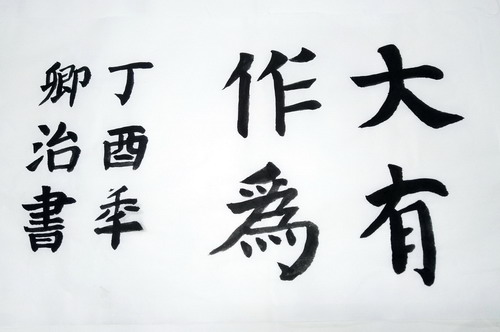 大有
作為
丁酉年
卿治書